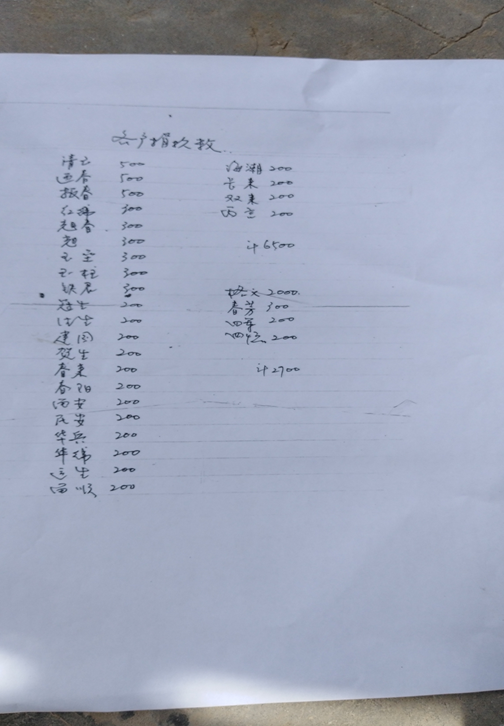 各户捐款数
清云 500
迎春 500
振春 500
红伟 300
超春 300
超 300
玉宝 300
玉柱 300
铁良 300
冠生 200
法生 200
建国 200
贺生 200
春来 200
春阳 200
西安 200
民安 200
华兵 200
华伟 200
运生 200
留顺 200
海潮 200
长来 200
双来 200
丙立 200
计6500
2000
春芳 300
四军 200
四红 200
计2700